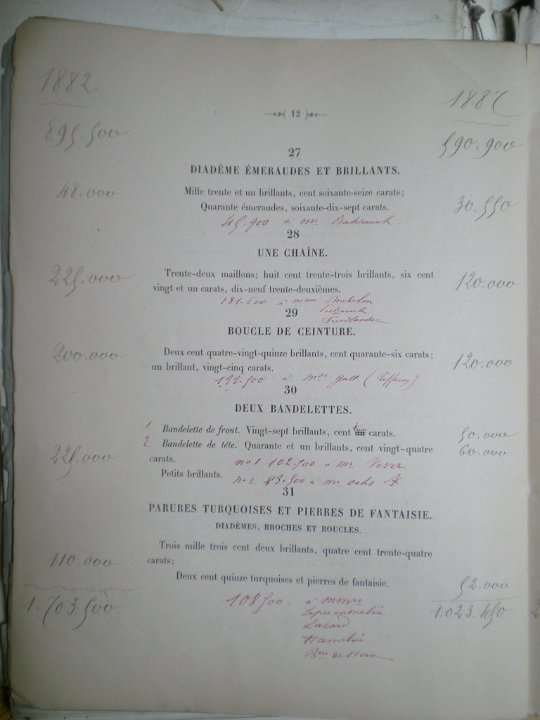 1882
1887
12
895.500
590.900
27
DIADÈME ÉMERAUDES ET BRILLANTS.
48.000
Mille trente et un brillants, cent soixante-seize carats;
Quarante émeraudes, soixante-dix-sept carats.
30.550
45.900 à Mr.
28
UNE CHAÎNE.
225.000
Trente-deux maillons; huit cent trente-trois brillants, six cent
vingt et un carats, dix-neuf trente-deuxièmes.
120.000
181.500 à
29
BOUCLE DE CEINTURE.
200.000
Deux cent quatre-vingt-quinze brillants, cent quarante-six carats;
un brillant, vingt-cinq carats.
120.000
à
30
DEUX BANDELETTES.
1 Bandelette de front. Vingt-sept brillants, cent carats.
50.000
2 Bandelette de tête. Quarante et un brillants, cent vingt-quatre
carats.
60.000
225.000
no 1 102.500 à Mr
Petits brillants.
no 2 83.500 à Mr
31
PARURES TURQUOISES ET PIERRES DE FANTAISIE.
DIADÈMES, BROCHES ET BOUCLES.
Trois mille trois cent deux brillants, quatre cent trente-quatre
carats;
110.000
Deux cent quinze turquoises et pierres de fantaisie.
52.000
1.703.500
108.500 à
1.023.450
Lazard
Hamelin